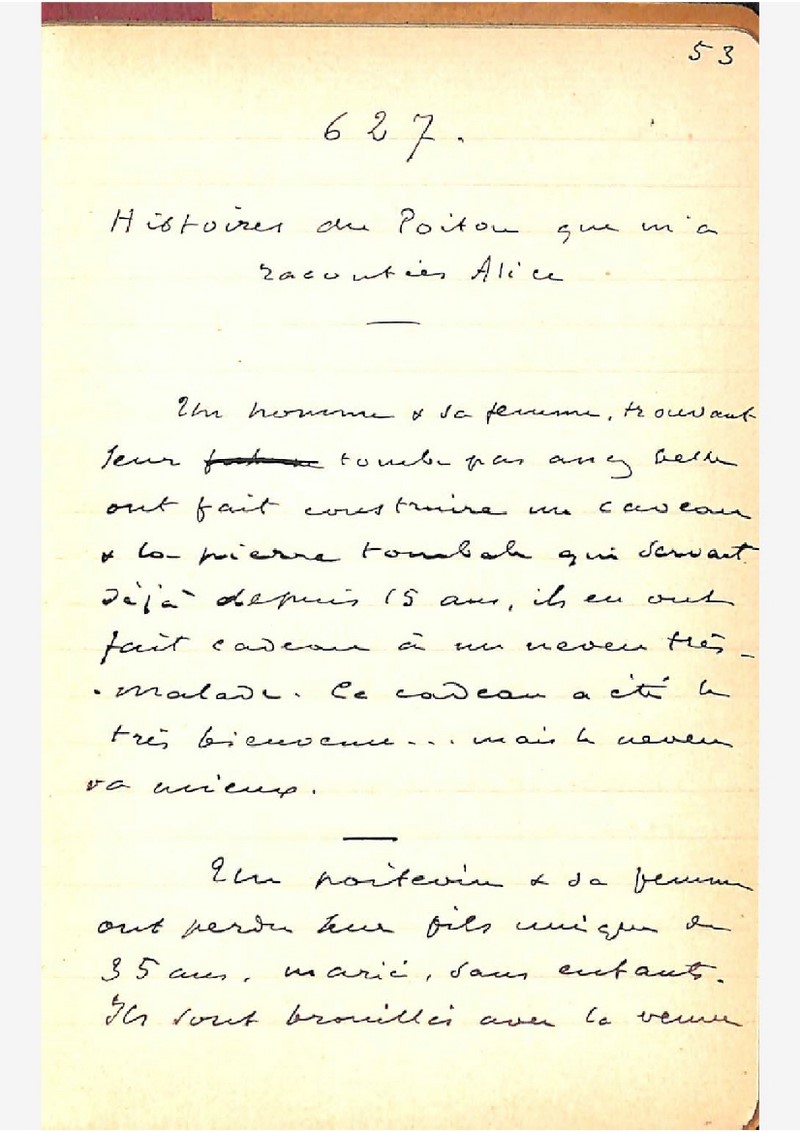 53
627.
Histoires du Poitou que m'a
racontées Alice
Un homme & sa femme, trouvant
leur tombe pas assez belle
ont fait construire un caveau
& la pierre tombale qui servait
déjà depuis 15 ans, ils en ont
fait cadeau à un neveu très-
-malade. Ce cadeau a été le
très bienvenu... mais le neveu
va mieux.
Un poitevin & sa femme
ont perdu leur fils unique de
35 ans, marié, sans enfants.
Ils sont brouillés avec la veuve